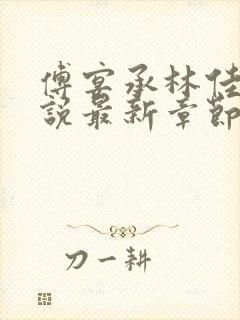 傅宴承林佳
說最新章節
刀一耕